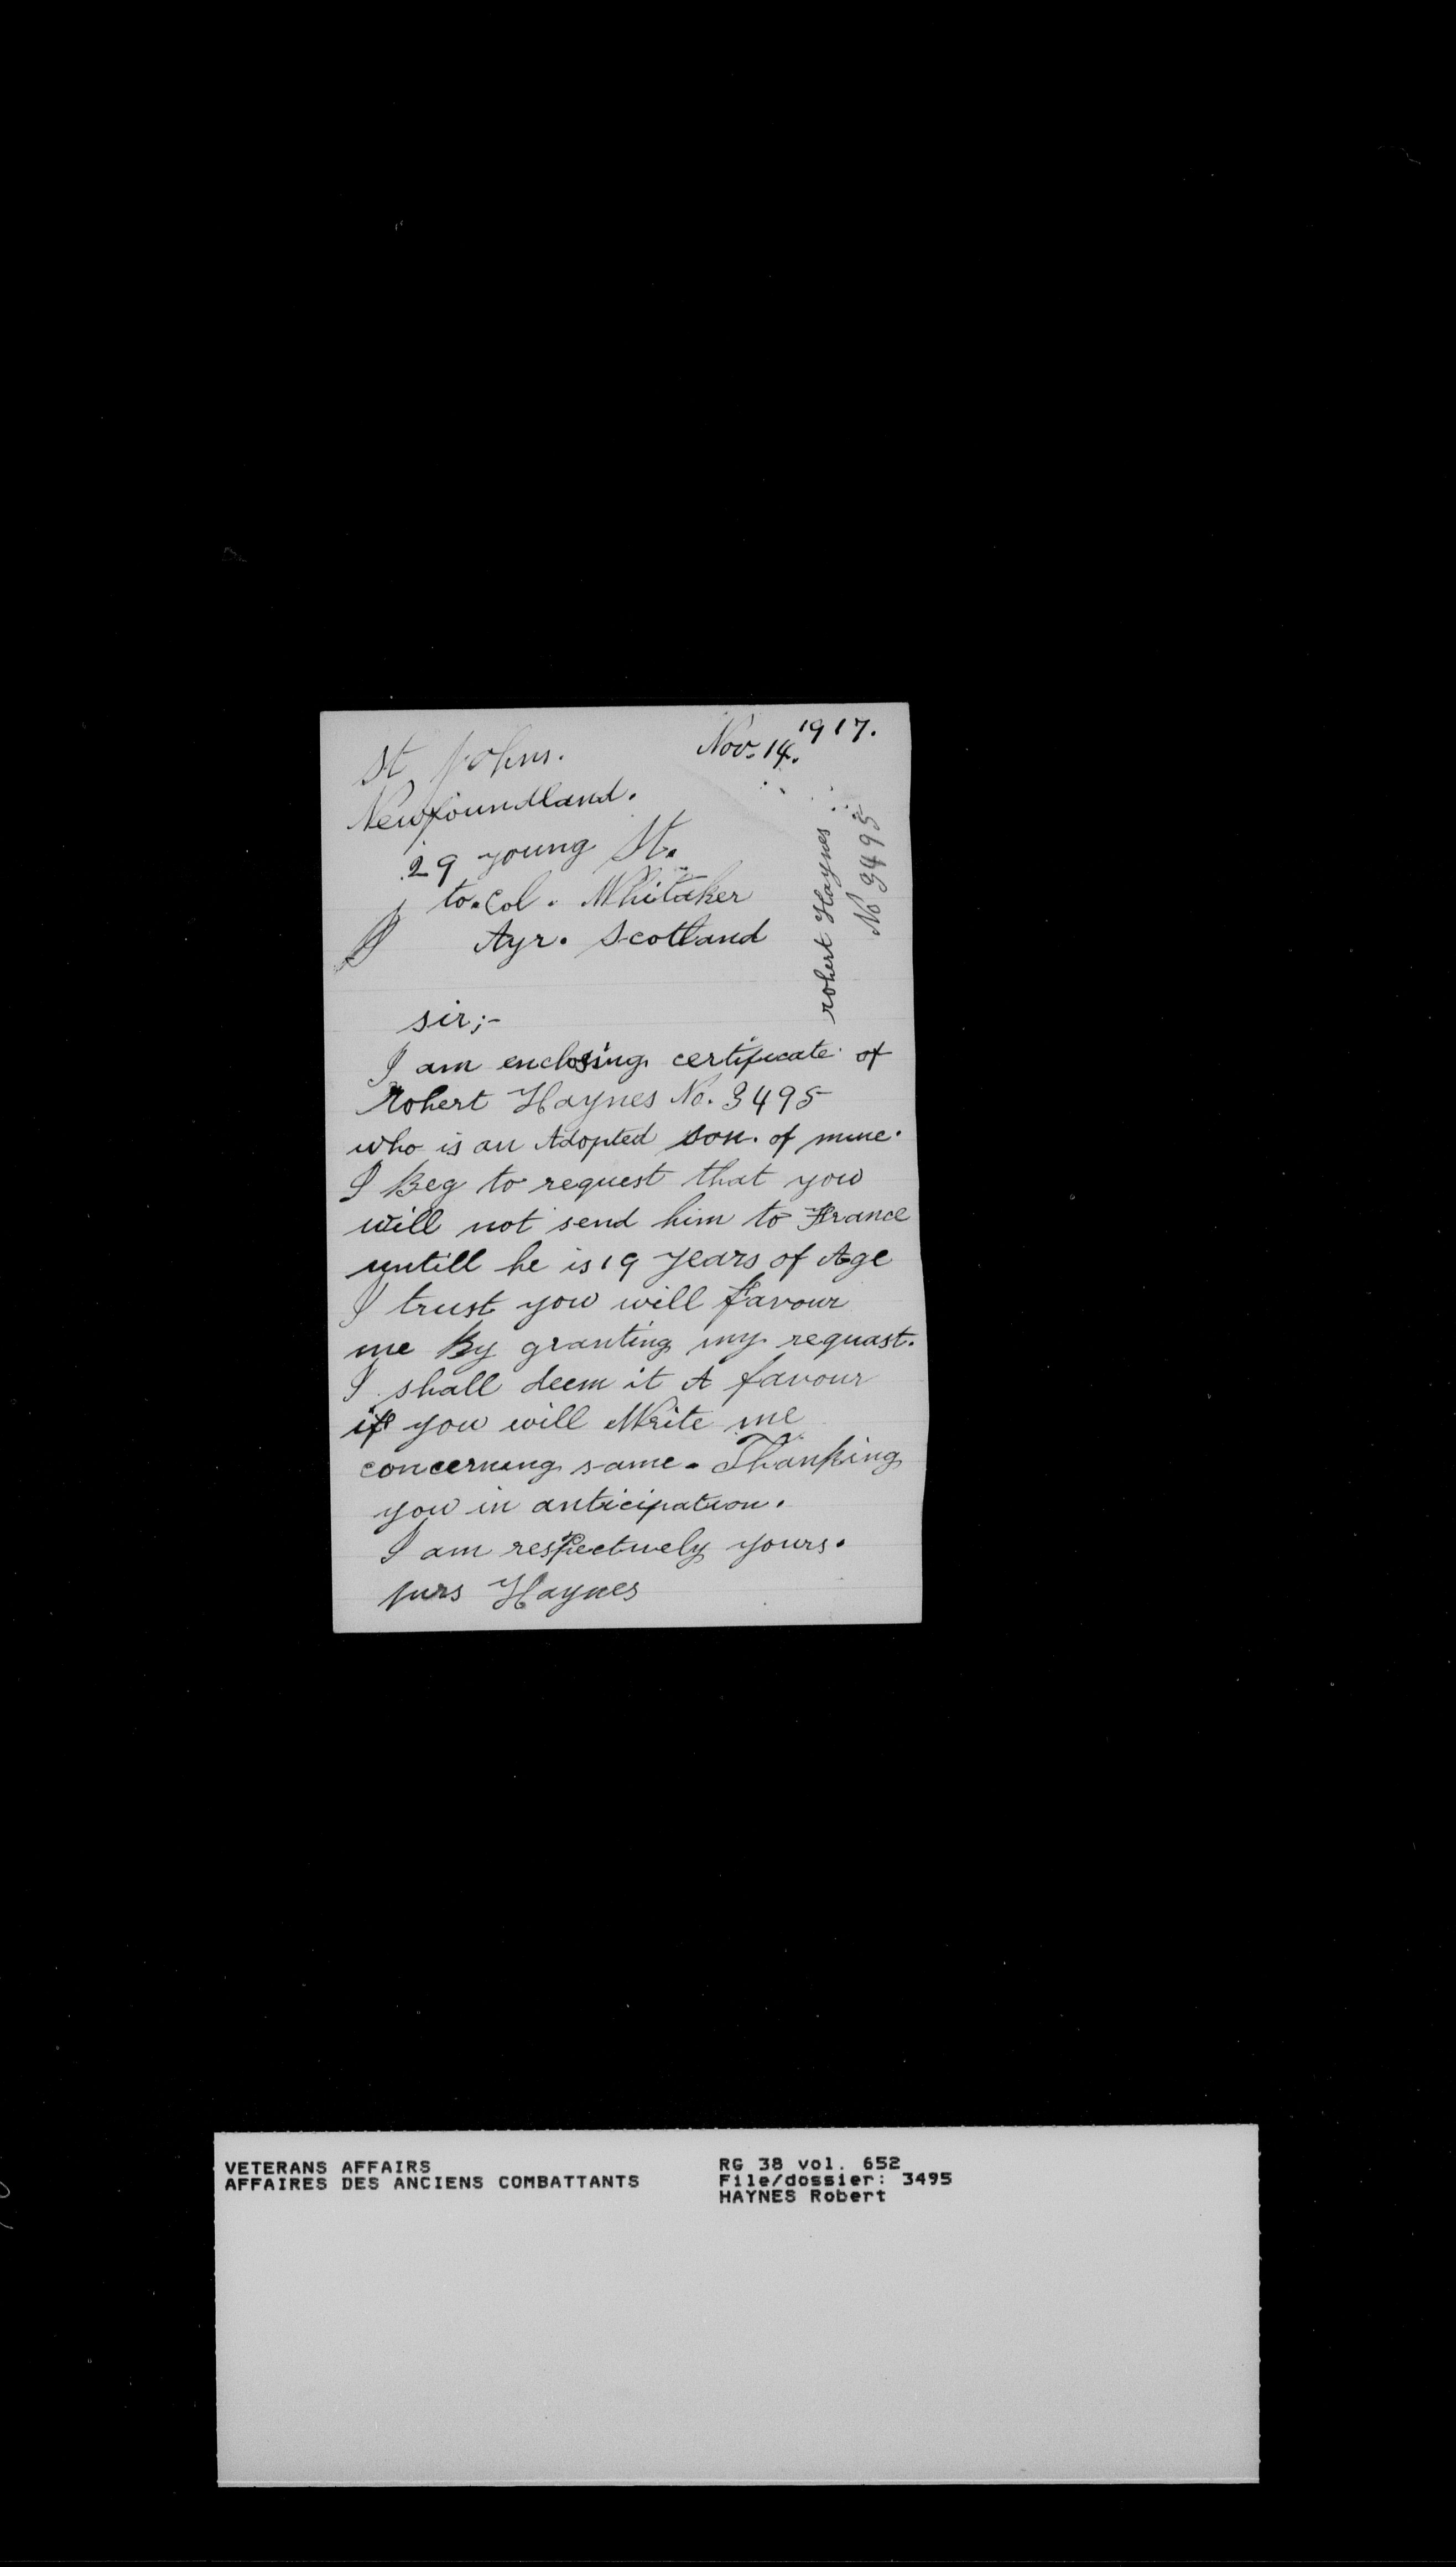 St Johns. Nov. 14. 1917.
Newfoundland.
29 young St.
to. Col. Whitaker
Ayr. Scotland
robert Haynes
No 3495
sir;-
I am enclosing certificate of
Robert Haynes No. 3495
who is an Adopted son. of mine.
I Beg to request that you
will not send him to France
untill he is 19 years of Age
I trust you will favour
me By granting my requast.
I shall deem it A favour
if you will Write me
concerning same. Thanking
you in anticipation.
I am respectively yours.
Mrs Haynes
VETERANS AFFAIRS
AFFAIRES DES ANCIENS COMBATTANTS
RG 38 vol. 652
File/dossier: 3495
HAYNES Robert